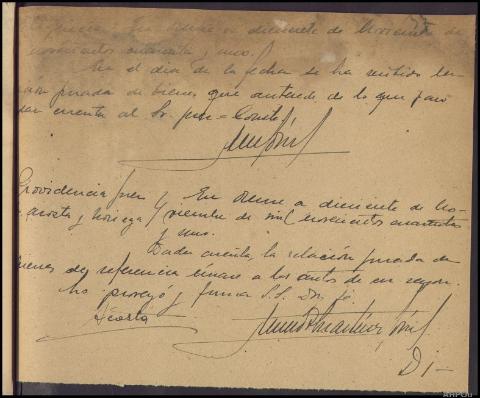 Diligencia En Orense a diecisiete de Noviembre de
novecientos cuarenta y uno.
En el día de la fecha se ha recibido
jurada de bienes que antecede de lo que paso
dar cuenta al Sr. Juez = Consta
Providencia Juez } En Orense a diecisiete de No-
Acosta y Noriega } viembre de mil novecientos cuarenta
y uno.
Dada cuenta, la relación jurada de
bienes de referencia unase a los autos de su razon.
Lo proveyó y firma S.S. Doy fe.
Acosta
Di-
AHPOu